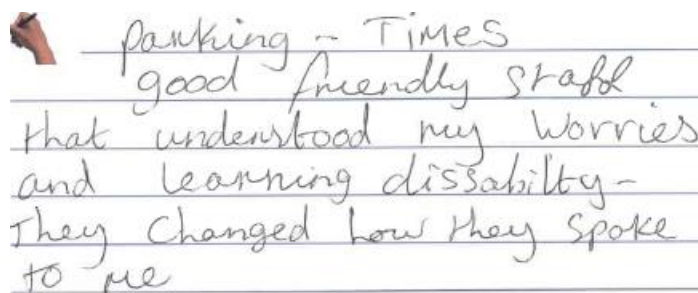 Parking - Times
good friendly staff
that understood my Worries
and learning dissabilty-
They Changed how they spoke
to me